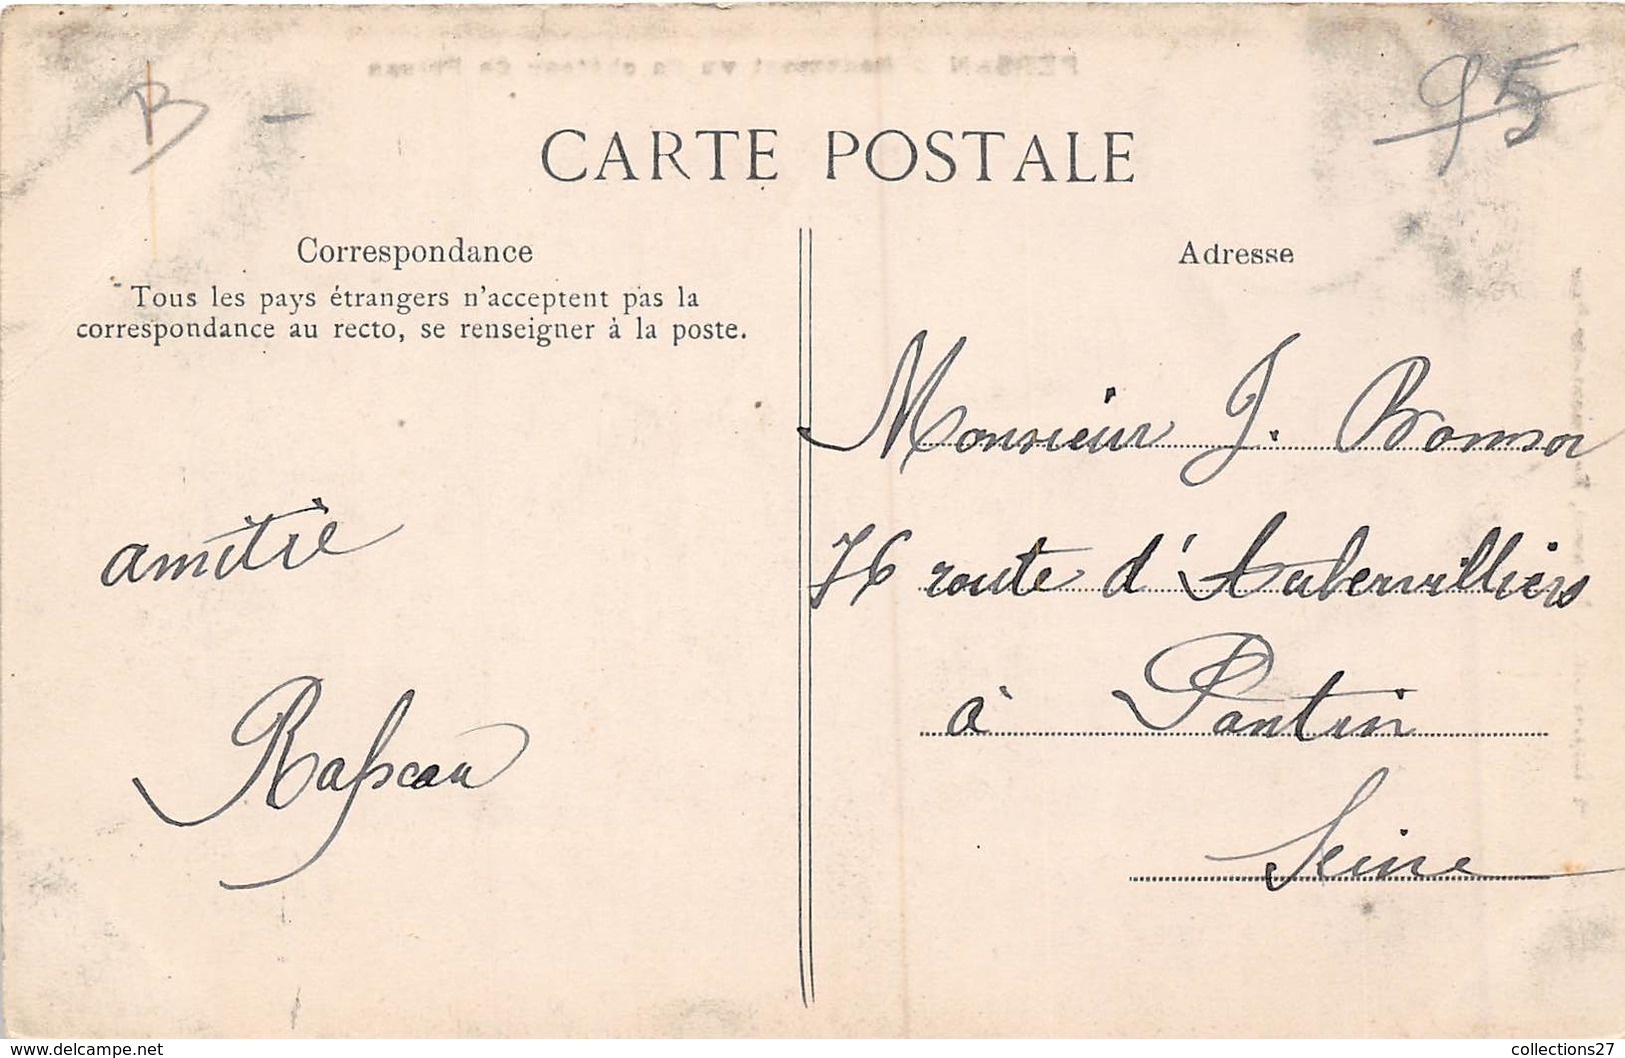 B -
95
CARTE POSTALE
Correspondance
Tous les pays étrangers n'acceptent pas la
correspondance au recto, se renseigner à la poste.
amitié
Adresse
Monsieur J.
76 route d'Aubervilliers
à Pantin
Seine
www.delcampe.net
collections27